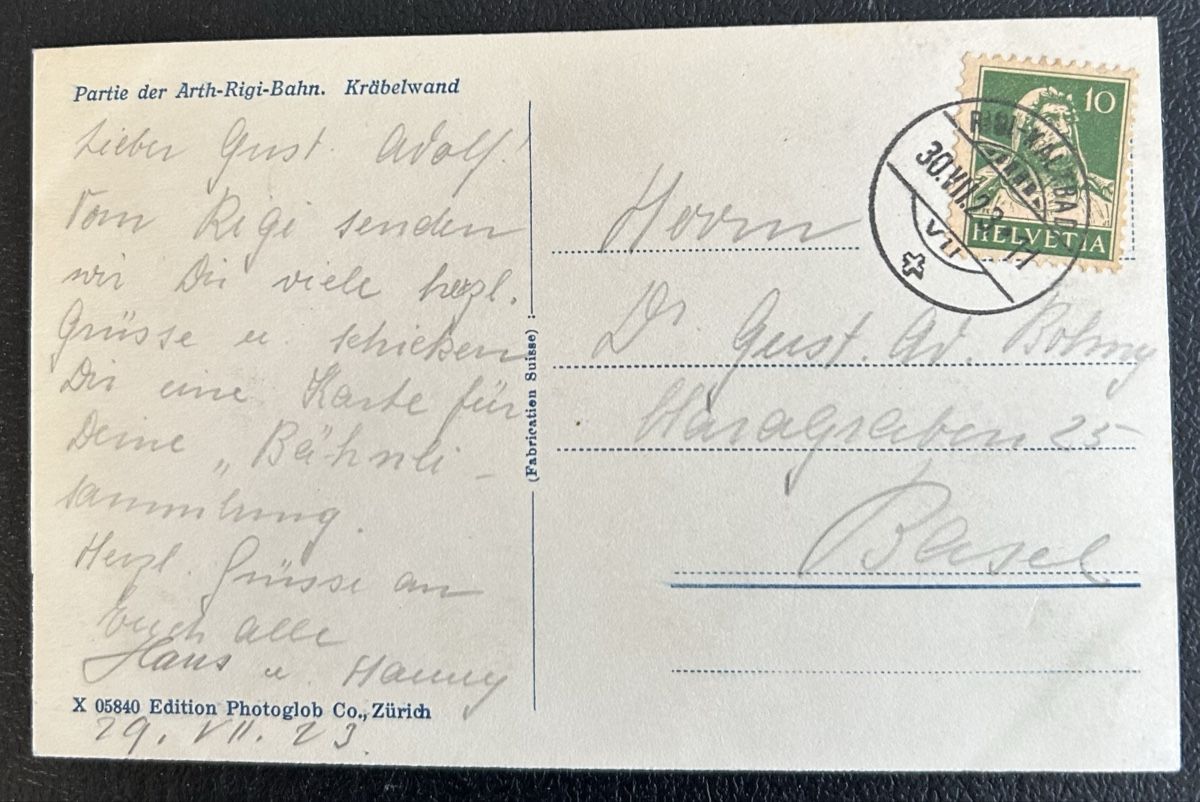 Partie der Arth-Rigi-Bahn. Kräbelwand
Lieber Gust. Adolf!
Vom Rigi senden
wir Dir viele herzl.
Grüsse u. schicken
Dir eine Karte für
Deine „Bähnli-
sammlung.
Herzl. Grüsse an
Euch alle
Hans u. Hanny
X 05840 Edition Photoglob Co., Zürich
29. VII. 23.
(Fabrication Suisse)
10
HELVETIA
RIGI-KALTBAD
30.VII.23-11
VII
Herrn
Dr. Gust. Ad.
25
Basel